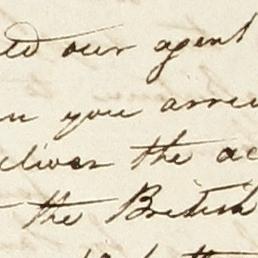 ed our agent
en you arri
eliver the ac
the British